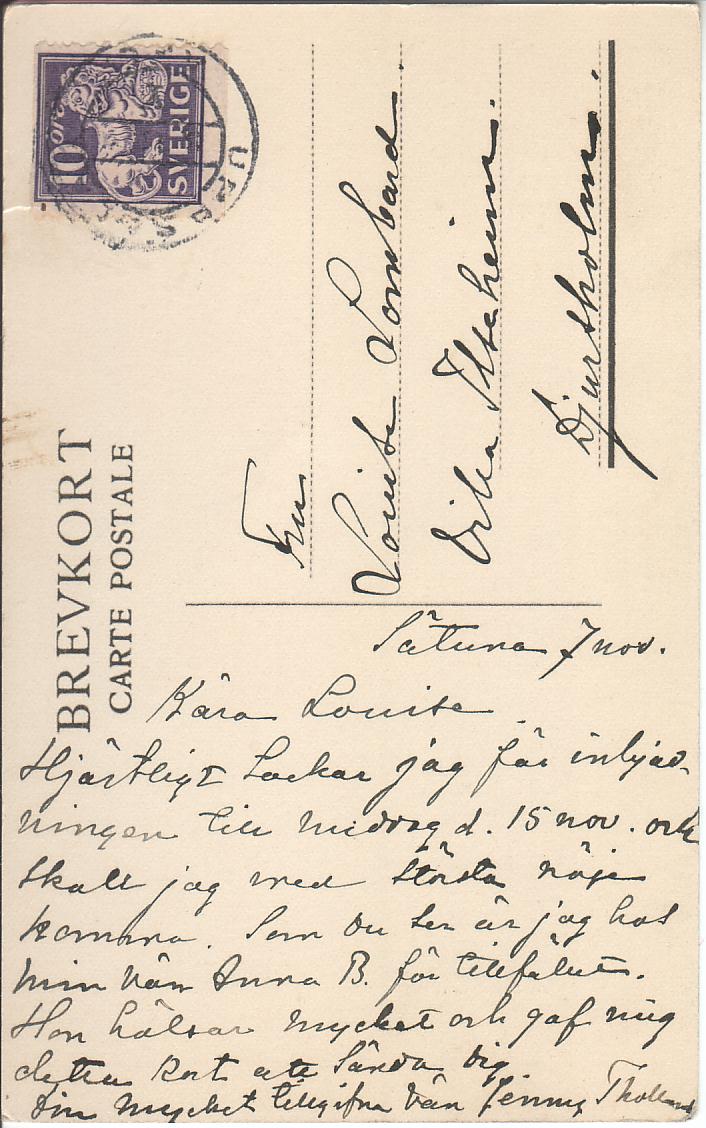 10 öre
SVERIGE
BREVKORT
CARTE POSTALE
Fru
Louise Lombard
Villa
Djursholm.
Sätuna 7 nov.
Kära Louise
Hjärtligt tackar jag för inbjud-
ningen till middag d. 15 nov. och
skall jag med största nöje
komma. Som Du ser är jag hos
min vän Anna B. för tillfället.
Hon hälsar mycket och gaf mig
detta kort att sända Dig.
Din mycket tillgifna vän Jenny